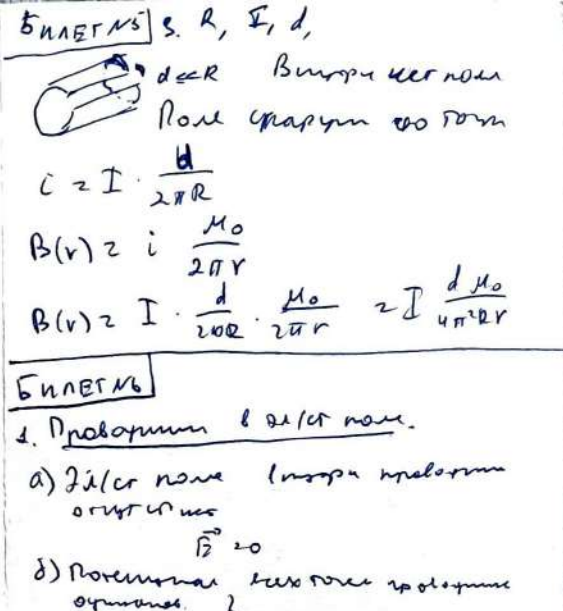 БИЛЕТ №5 3. R, I, d,
d ≪ R Внутри нет поля
Поле снаружи
i = I · d / 2πR
B(r) = i μ₀ / 2πr
B(r) = I · d / 2πR · μ₀ / 2πr = I d μ₀ / 4π²Rr
БИЛЕТ №6
1. Проводники в эл/ст поле.
а) Эл/ст поле внутри проводника
отсутствует
E⃗ = 0
б) Потенциал всех точек проводника
одинаков.